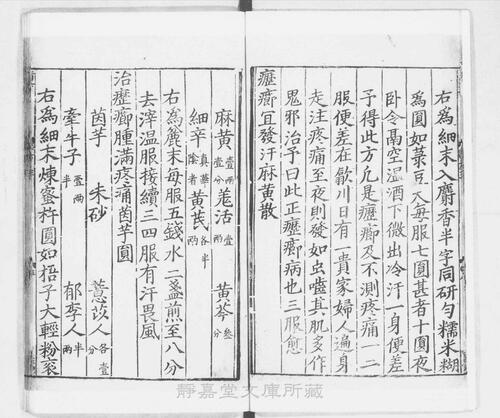 右爲細末入麝香半字同研勻糯米糊
爲圓如菉豆大每服七圓甚者十圓夜
卧令鬲空温酒下微出冷汗一身便差
予得此方凢是癧癤及不測疼痛一二
服便差在歙川日有一貴家婦人遍身
走注疼痛至夜則發如虫噬其肌多作
鬼邪治予曰此正癧癤病也三服愈
癧癤宜發汗麻黃散
麻黃壹兩壹分 羗活壹兩 黃芩叁分
細辛真華陰者 黃芪各半兩
右爲麄末每服五錢水二盞煎至八分
去滓温服接續三四服有汗畏風
治癧癤腫滿疼痛茵芋圓
茵芋 朱砂 薏苡人各壹分
牽牛子壹兩半 郁李人半兩
右爲細末煉蜜杵圓如梧子大輕粉衮
靜嘉堂文庫所藏